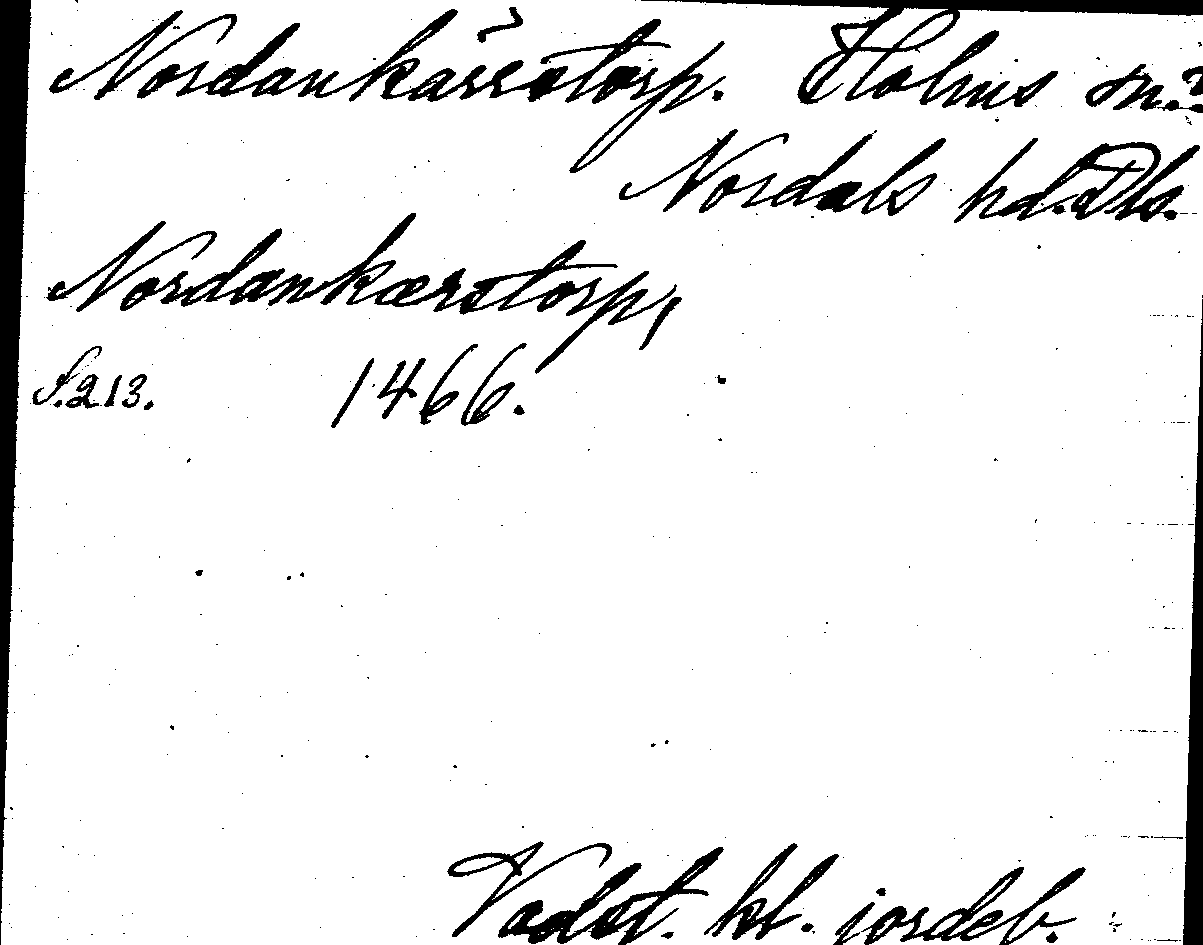 Nordankärrstorp. Holms sn.?
Nordals hd. Dls.
Nordankærstorp,
S. 213. 1466.
Vadst. kl. jordeb.